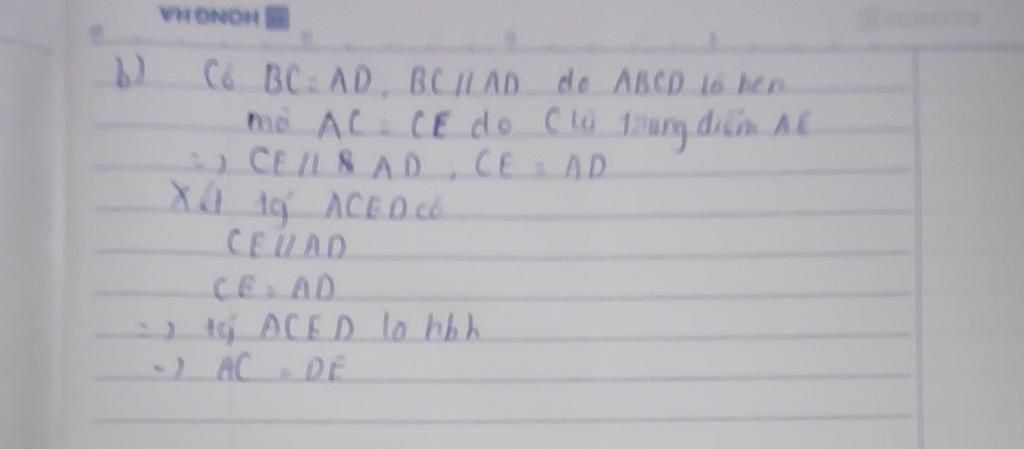 HONG HA
b) Có BC = AD, BC // AD do ABCD là hcn
mà AC = CE do C là trung điểm AE
=> CE // AD, CE = AD
Xét tg ACED có
CE // AD
CE = AD
=> tg ACED là hbh
=> AC = DE